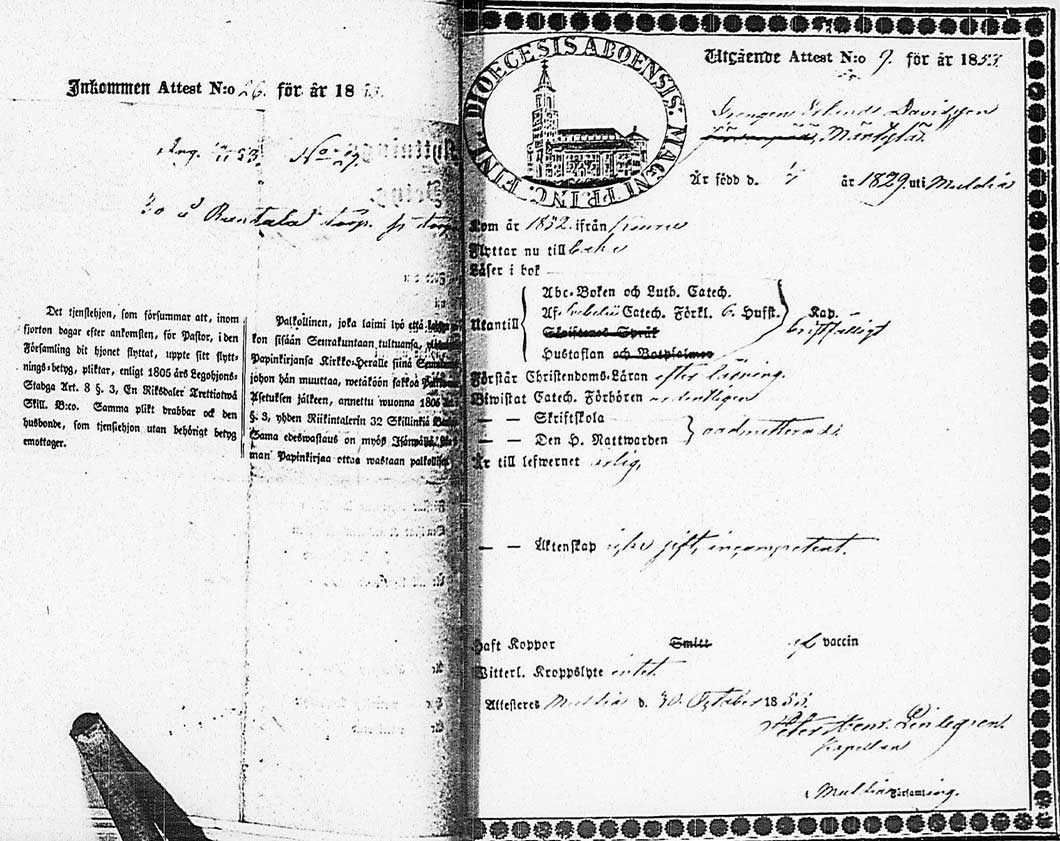 Inkommen Attest N:o 26. för år 1853.
Ang. 53. No 29.
å Rantala torp.
Det tjenstehjon, som försummar att, inom
fjorton dagar efter ankomsten, för Pastor, i den
Församling dit hjonet flyttat, uppte sitt flytt-
nings-betyg, pliktar, enligt 1805 års Legohjons-
Stadga Art. 8 §. 3, En Riksdaler Trettiotwå
Skill. B:co. Samma plikt drabbar ock den
husbonde, som tjenstehjon utan behörigt betyg
emottager.
Palkollinen, joka laimi lyö että
kon sisään Seurakuntaan tultuansa,
Papinkirjansa Kirkko-Herralle siinä
johon hän muuttaa, wetäköön sakkoa
Asetuksen jälkeen, annettu wuonna 1805
§. 3, yhden Riikintalerin 32 Skillinkiä
Sama edeswastaus on myös Isännällä,
man Papinkirjaa ottaa wastaan
DIOECESIS ABOENSIS. MAGNI PRINC. FINL.
Utgående Attest N:o 9. för år 1853.
Drengen Erland Davidsson
Mäntylä
Är född d. år 1829 uti Muldia
Kom år 1852. ifrån Keuru
Flyttar nu till
Läser i bok
Utantill
Abc-Boken och Luth. Catech.
Af Svebelii Catech. Förkl. 6. Hufst. Kap.
bristfälligt
Skriftenes Språk
Hustaflan och Botpsalmer
Förstår Christendoms-Läran efter läsning.
Biwistat Catech. Förhören ordentligen
— — Skriftskola
— — Den H. Nattwarden
oadmitterad.
Är till lefwernet ärlig,
— — Äktenskap icke gift, incompetent.
Haft Koppor Smitt af vaccin
Witterl. Kroppslyte intet.
Attesteres Muldia d. 30 October 1853.
Kapellan
Muldia Församling.